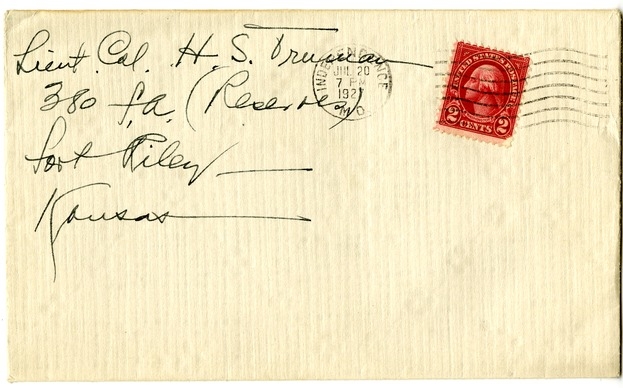 Lieut Col. H. S. Truman
380 F.A. (Reserves)
Fort Riley
Kansas
INDEPENDENCE
JUL 20
7 PM
MO
UNITED STATES POSTAGE
2 CENTS 2